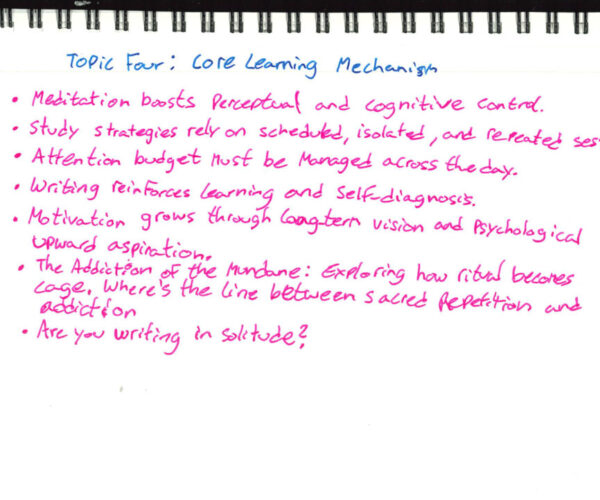 Topic Four: Core Learning Mechanism
• Meditation boosts Perceptual and cognitive control.
• Study strategies rely on scheduled, isolated, and repeated ses
• Attention budget must be Managed across the day.
• Writing reinforces learning and self-diagnosis.
• Motivation grows through long-term vision and Psychological
upward aspiration.
• The Addiction of the Mundane: Exploring how ritual becomes
cage. Where's the line between sacred Repetition and
addiction
• Are you writing in solitude?